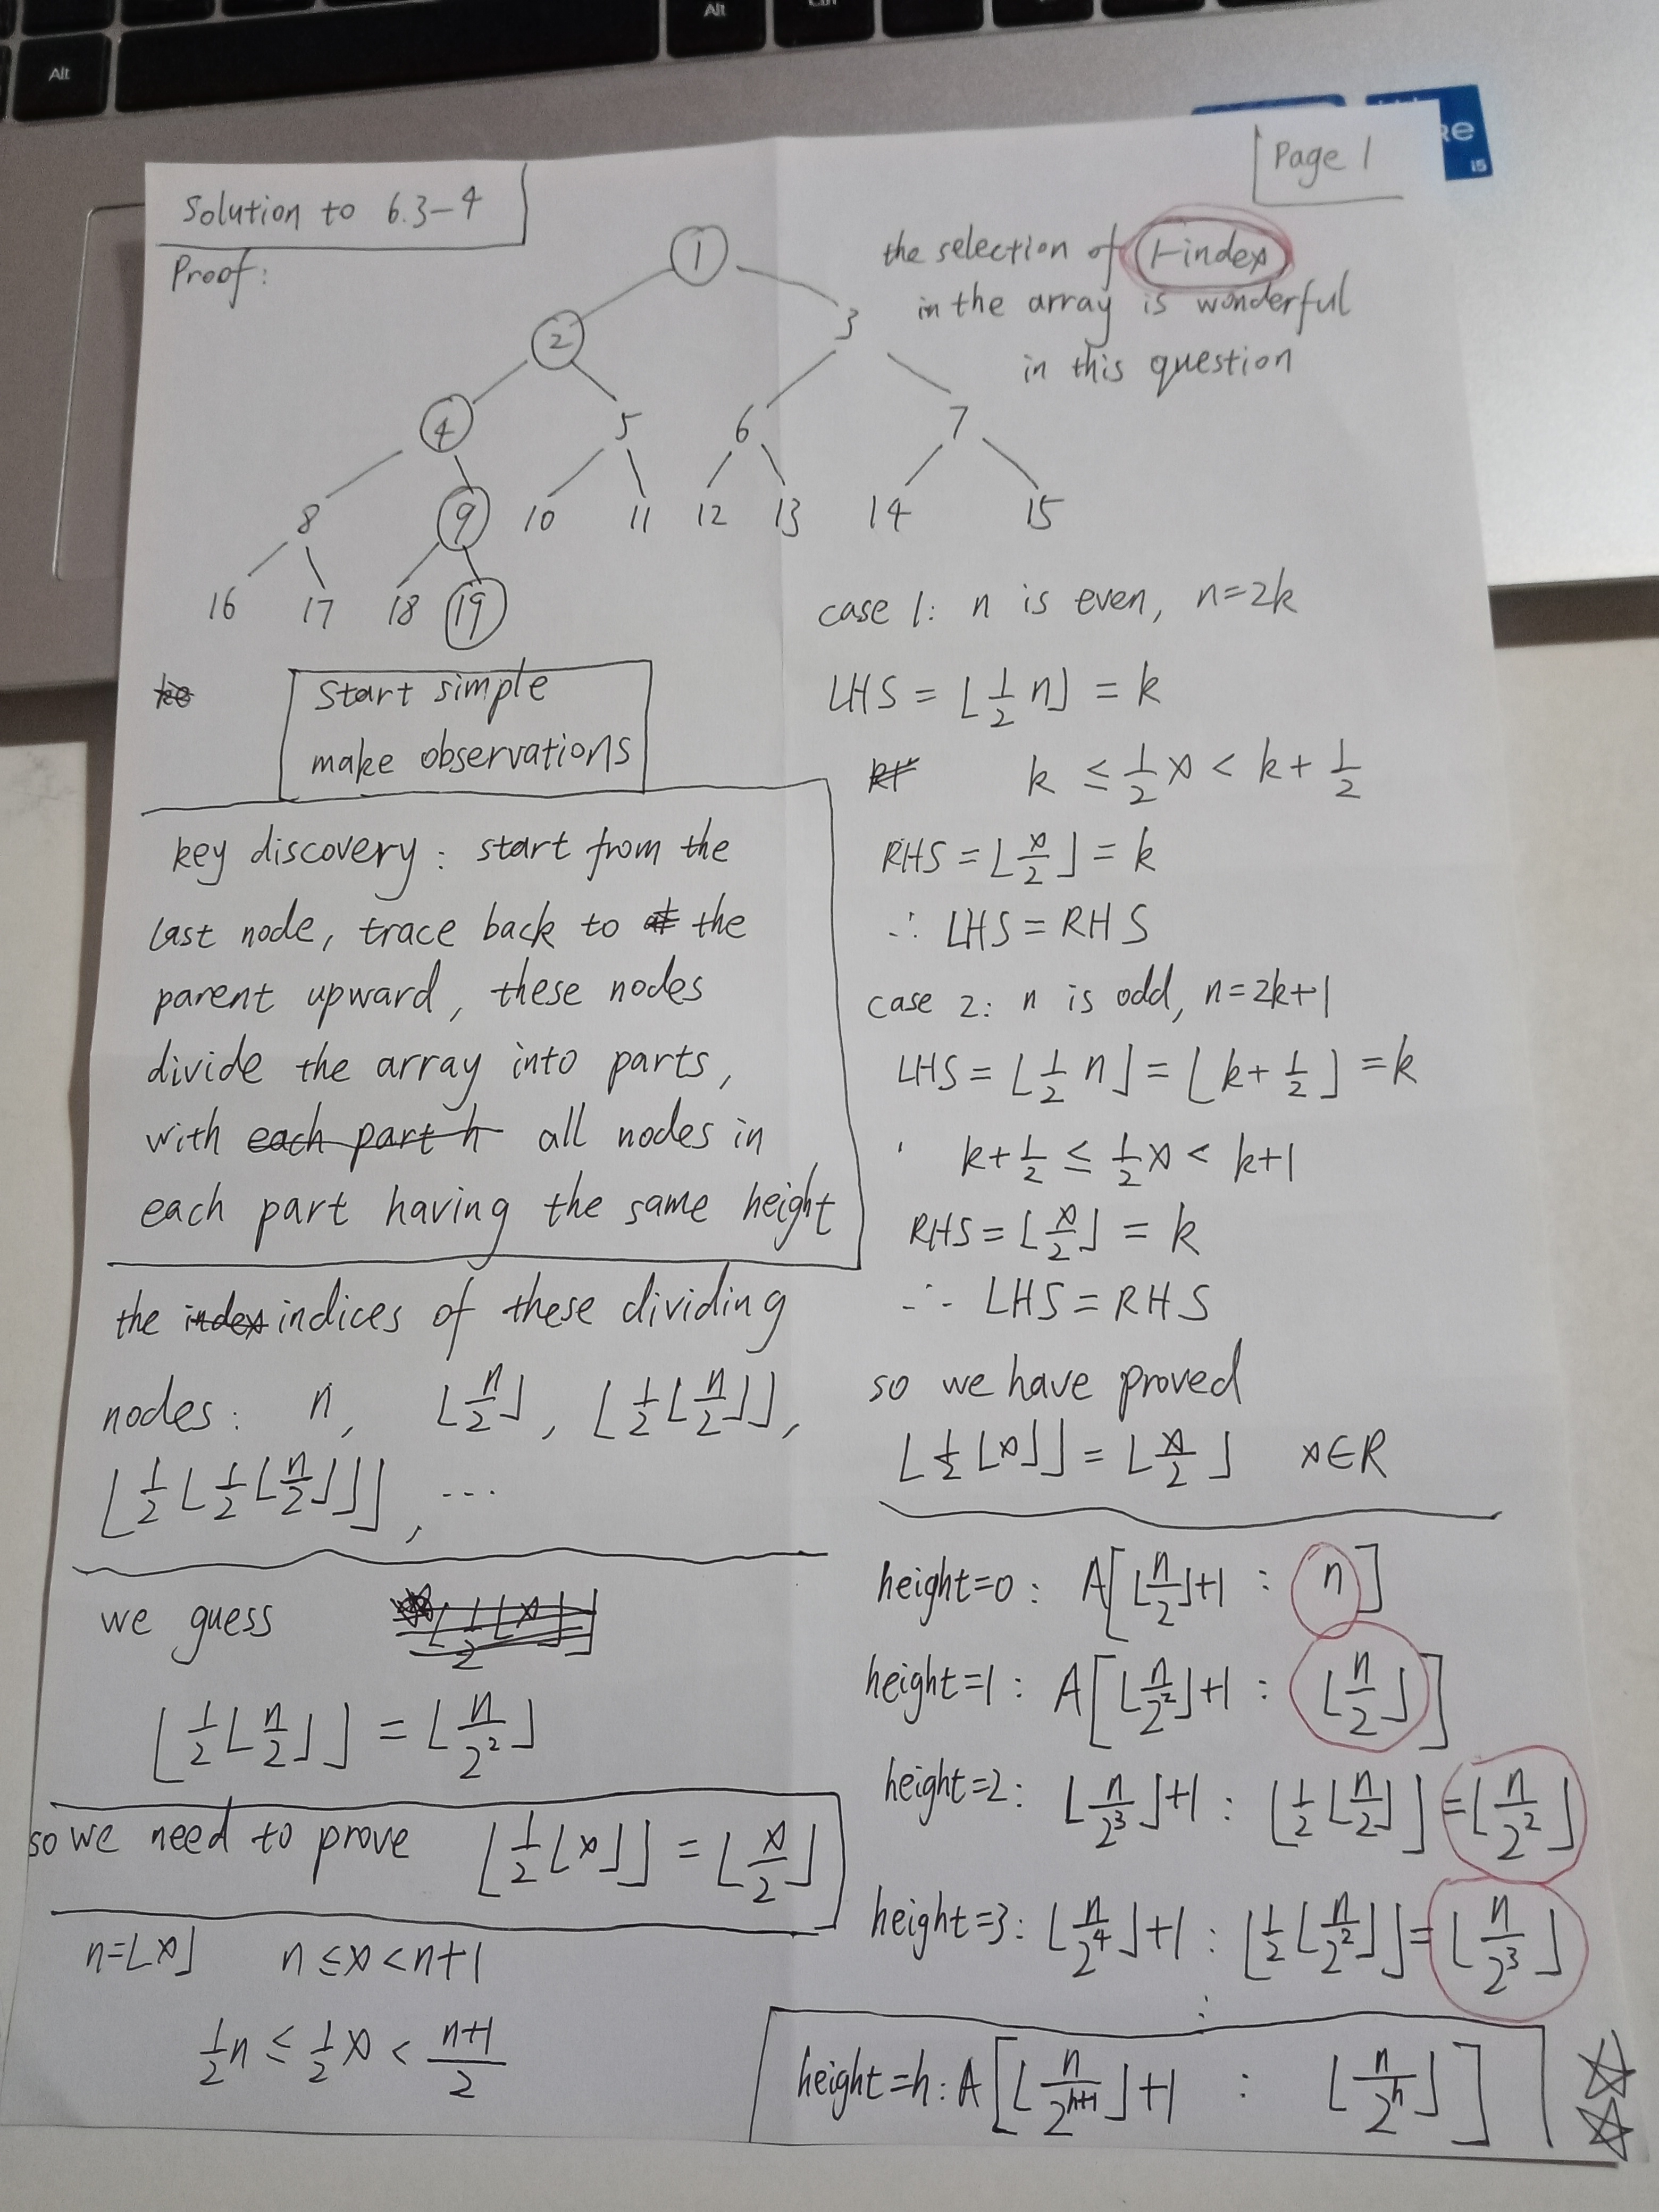 Alt
Alt
Ctrl
RE
i5
Page 1
Solution to 6.3-4
Proof:
the selection of 1-index
in the array is wonderful
in this question
1
2 3
4 5 6 7
8 9 10 11 12 13 14 15
16 17 18 19
Start simple
make observations
key discovery: start from the
last node, trace back to the
parent upward, these nodes
divide the array into parts,
with each part h all nodes in
each part having the same height
the index indices of these dividing
nodes: n, ⌊n/2⌋, ⌊1/2⌊n/2⌋⌋,
⌊1/2⌊1/2⌊n/2⌋⌋⌋, ...
we guess ⌊1/2⌊x⌋⌋
⌊1/2⌊n/2⌋⌋ = ⌊n/2²⌋
so we need to prove ⌊1/2⌊x⌋⌋ = ⌊x/2⌋
n=⌊x⌋ n≤x<n+1
1/2n ≤ 1/2x < n+1/2
case 1: n is even, n=2k
LHS = ⌊1/2 n⌋ = k
k ≤ 1/2x < k+1/2
RHS = ⌊x/2⌋ = k
∴ LHS = RHS
case 2: n is odd, n=2k+1
LHS = ⌊1/2 n⌋ = ⌊k+1/2⌋ = k
k+1/2 ≤ 1/2x < k+1
RHS = ⌊x/2⌋ = k
∴ LHS = RHS
so we have proved
⌊1/2⌊x⌋⌋ = ⌊x/2⌋ x∈R
height=0: A[⌊n/2⌋+1 : n]
height=1: A[⌊n/2²⌋+1 : ⌊n/2⌋]
height=2: ⌊n/2³⌋+1 : ⌊1/2⌊n/2⌋⌋=⌊n/2²⌋
height=3: ⌊n/2⁴⌋+1 : ⌊1/2⌊n/2²⌋⌋=⌊n/2³⌋
⋮
height=h: A[⌊n/2ʰ⁺¹⌋+1 : ⌊n/2ʰ⌋]